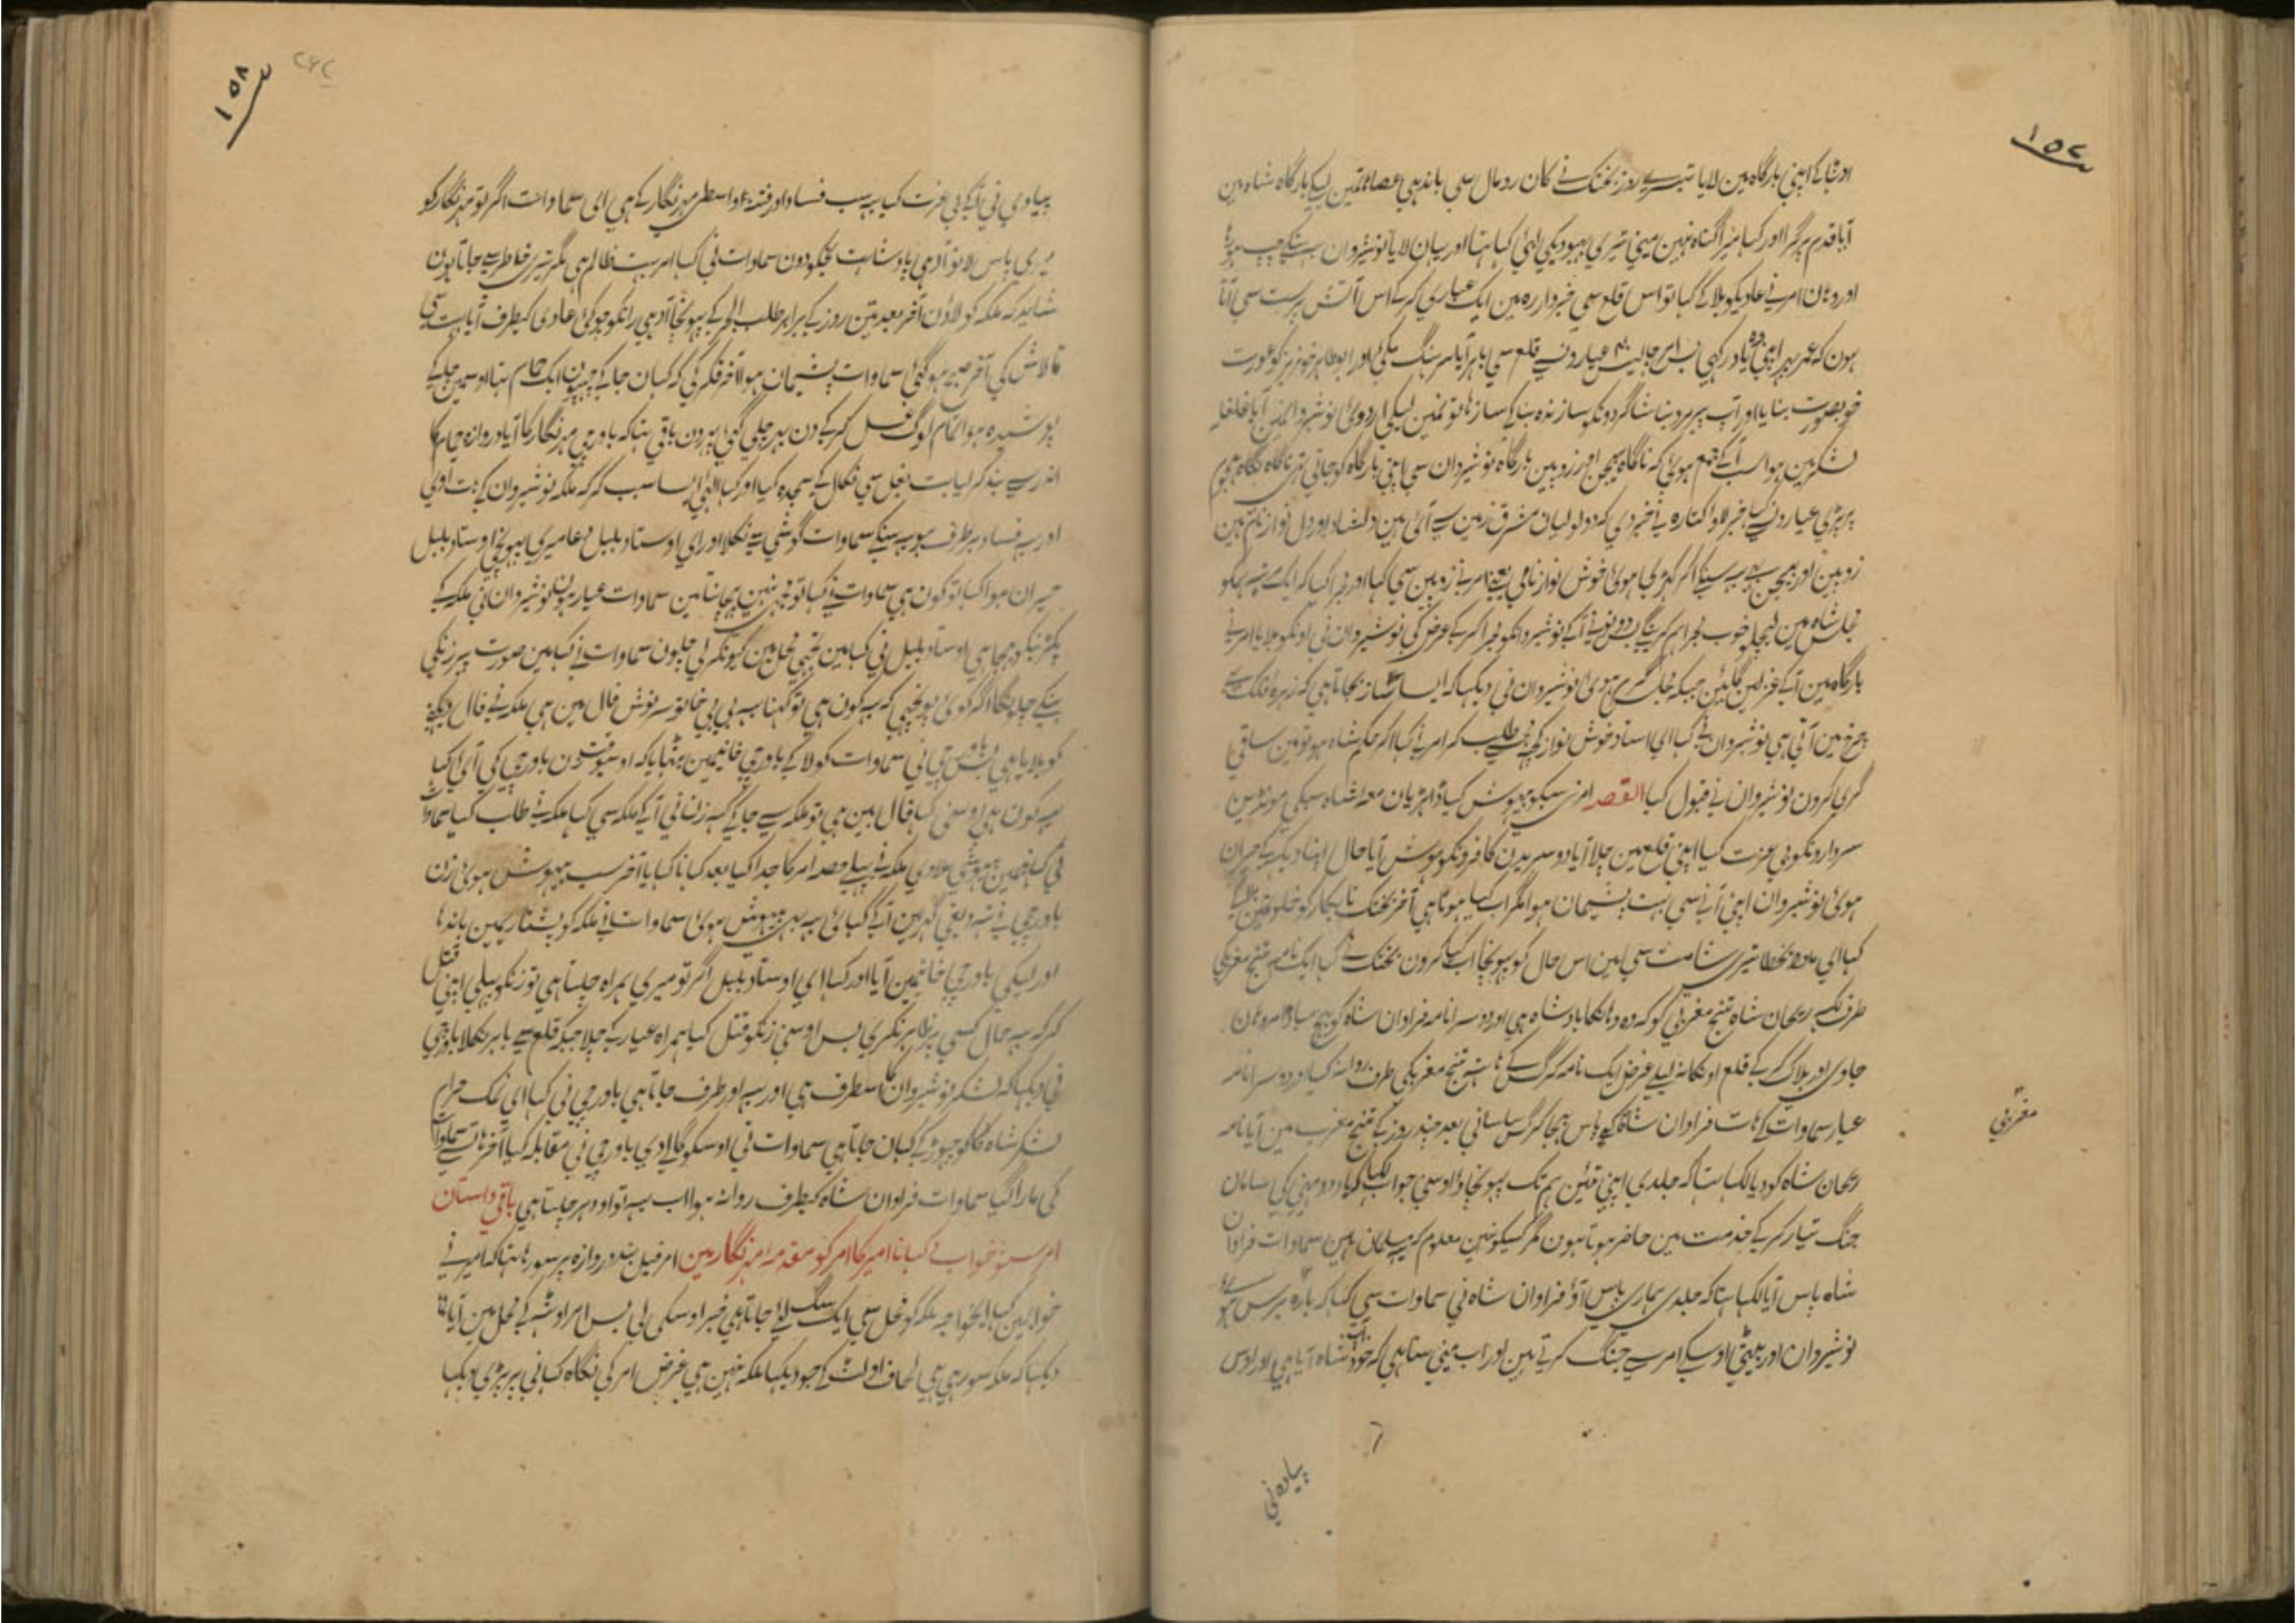 ۱۵۷
اوٹھا کے اپنی بارگاہ مین لایا تیسرے روز بختک نے کان رومال سی باندہی عصا ہاتھمین لیکے بارگاہ شاہ مین
آیا قدم پر گرا اور کہا میرا گناہ نہین مینی تیری بہبودیکی لئی کہا تہا اور یہان لایا نوشیروان سنکے چپ ہو رہا
اور وہان امر نے عادیکو بلا کے کہا تو اس قلع سی خبردار رہ مین ایک عیاری کر کے اس آتش پرست سی آتا
ہون کہ عمر بہر اپنی یاد رکہی پس امر چالیس عیارونسے قلع سی باہر آیا سرہنگ مکی اور ابو طاہر خونریز کو عورت
خوبصورت بنایا اور آپ پیر مرد بنا شاگردونکو سازندہ بنا کے ساز ہاتونمین لیکی اردوی نوشیروانمین آیا غلغلہ
لشکر مین ہوا سب آ کے جمع ہوئی کہ ناگاہ بیجن اور زوبین بارگاہ نوشیروان سی اپنی بارگاہ کو جاتی تہی ناگاہ نگاہ ہجوم
پر پڑی عیارونسے کہا خبر لاوا کتارہ نے خبر دی کہ دو لولیان مشرق زمین سے آئی ہین دلشاد اور دل نواز نام ہین
زوبین اور بیجن یہ سنکے
مجلس شاہ مین لیچلو خوب مجرا ہم کرینگے پس دونونے آ کے نوشیروانکو مجرا کر کے عرض کی نوشیروان نی اونکو بلایا امر نے
بارگاہ مین آ کے غزلین گائین جبکہ مجلس گرم ہوئی نوشیروان نی دیکہا کہ ایسا ساز بجاتا ہی کہ زہرہ فلک سے
چرخ مین آتی ہی نوشیروان نے کہا ای استاد خوش نواز کچہ طلب کر امر نے کہا اگر حکم شاہ ہو تو مین ساقی
گری کرون نوشیروان نے قبول کیا القصہ امر نی سبکو بیہوش کیا ڈاہڑیان معہ شاہ سبکی مونڈین
سردارونکو بی عزت کیا اپنی قلع مین چلا آیا دوسریدن کافرونکو ہوش آیا حال اپنا دیکہہ کے حیران
ہوئی نوشیروان اپنی آنے سی بہت پشیمان ہوا مگر اب کیا ہوتا ہی آخر بختک نابکار کو خلوتمین بلا کے
کہا ای تیری شامت سی مین اس حال کو پہونچا اب کیا کرون بختک نے کہا ایک نامہ گنج مغربکی
طرف لکہہ ریحان شاہ گنج مغربی کو کہ وہ وہانکا بادشاہ ہی اور دوسرا نامہ فراوان شاہ کو بہیج مبادا امر وہان
جاوی اور ہلاک کر کے قلع اونکا نہ لیلے غرض ایک نامہ گرگس کے ہاتہ گنج مغربکی طرف روانہ کیا اور دوسرا نامہ
عیار سماوات کے ہات فراوان شاہ کے پاس بہجا گرگس ساسانی بعد چند روز کے گنج مغرب مین آیا نامہ
ریحان شاہ کو دیا لکہا تہا کہ جلدی اپنی تئین ہم تک پہونچاؤ اوسنی جواب لکہا کہ دو مہنی کی سامان
جنگ تیار کر کے خدمت مین حاضر ہوتا ہون مگر کسیکو نہین معلوم کہ یہ مسلمان ہین سماوات فراوان
شاہ پاس آیا لکہا تہا کہ جلدی ہماری پاس آؤ فراوان شاہ نی سماوات سی کہا کہ بارہ برس سے
نوشیروان اور بیٹی اوسکے امر سے جنگ کرتے ہین اور اب مینی سنا ہی کہ خود شاہ آیا ہی اور اوس
مغربی
پیادہ نی
۱۵۸
پیادی نی آ کے بی عزت کیا یہ سب فساد اور فتنہ واسطی مہر نگار کے ہی ای سماوات اگر تو مہر نگار کو
میری پاس لا تو آدہی بادشاہت تجکو دون سماوات نی کہا امر بہت ظالم ہی مگر تیری خاطر سے جاتا ہون
شاید کہ ملکہ کو لاؤن آخر بعد تین روز کے برابر طلب المر کے پہونچا آدہی رات کو چوکی عادی کیطرف آیا بہت سی
تلاش کی آخر صبح ہو گئی سماوات پشیمان ہوا آخر فکر کی کہ کہان جا کے چہپون ایک حمام تہا اوسمین جا کے
پوشیدہ ہوا تمام لوگ غسل کر کے دن بہر چلی گئی پہر دن باقی تہا کہ باورچی مہر نگار کا آیا دروازہ حمام کا
اندر سے بند کر لیا بت بغل سی نکال کے سجدہ کیا اور کہا الٰہی ایسا سبب کر کہ ملکہ نوشیروان کے ہات آوی
اور یہ فساد برطرف ہو یہ سنکے سماوات گوشی سے نکلا اور ای اوستاد بلبل دعا میری پہونچی اوستاد بلبل
حیران ہوا کہا تو کون ہی سماوات نے کہا تو مجہی نہین پہچانتا مین سماوات عیار ہون نوشیروان نی ملکہ کے
پکڑنیکو بہجا ہی اوستاد بلبل نی کہا مین تجہی محل مین کیونکر لی چلون سماوات نے کہا مین صورت پیر زنکی
بنکے چلونگا اگر کوئی پوچہی کہ یہ کون ہی تو کہنا یہ بی بی خاتو سر نوش فال بین ہی ملکہ نے فال دیکہنے
کو بلایا ہی پس باورچی نی سماوات کو لا کے باورچی خانیمین بٹہایا کہ اوسوقت زن باورچی کی آئی کہا
یہ کون ہی اوسنی کہا فال بین ہی تو ملکہ سے جا کے کہہ زن نی آ کے ملکہ سی کہا ملکہ نے طلب کیا سماوات
نی کہانمین بیہوشی ملا دی ملکہ نے پہلے حصہ امر کا جدا کیا بعد کہانا کہایا آخر سب بیہوش ہوئی زن
باورچی نے تہ دیغی گہر مین آ کے کہائی یہ بہی بیہوش ہوئی سماوات نے ملکہ کو پشتاریمین باندہا
اور لیکی باورچی خانیمین آیا اور کہا ای اوستاد بلبل اگر تو میری ہمراہ چلتا ہی تو زنکو پہلی اپنی قتل
کر کہ یہ حال کسی پر ظاہر نکری پس اوسنی زنکو قتل کیا ہمراہ عیار کے چلا جبکہ قلع سے باہر نکلا باورچی
نی دیکہا کہ لشکر نوشیروان کا اسطرف ہی اور یہ اور طرف جاتا ہی باورچی نی کہا ای نمک حرام
لشکر شاہ کا کو چہوڑ کے کہان جاتا ہی سماوات نی اوسکو گالی دی باورچی نی مقابلہ کیا آخر ہات سے سماوات
کی مارا گیا سماوات فراوان شاہ کیطرف روانہ ہوا اب یہ تو اودہر چلتا ہی باقی داستان
امر سنو خواب نے کہانا امیر کا امر کو مقدمہ مہر نگار مین امر فیل بند دروازہ پر سو رہا تہا کہ امیر نے
خوابمین کہا ای خواجہ ملکہ کو محل سی ایک سگ لئی جاتا ہی خبر اوسکی لی پس امر اوٹہہ کے محل مین آیا
دیکہا کہ ملکہ سو رہی ہی لحاف اولٹ کے جو دیکہا ملکہ نہین ہی غرض امر کی نگاہ کہانی پر پڑی دیکہا